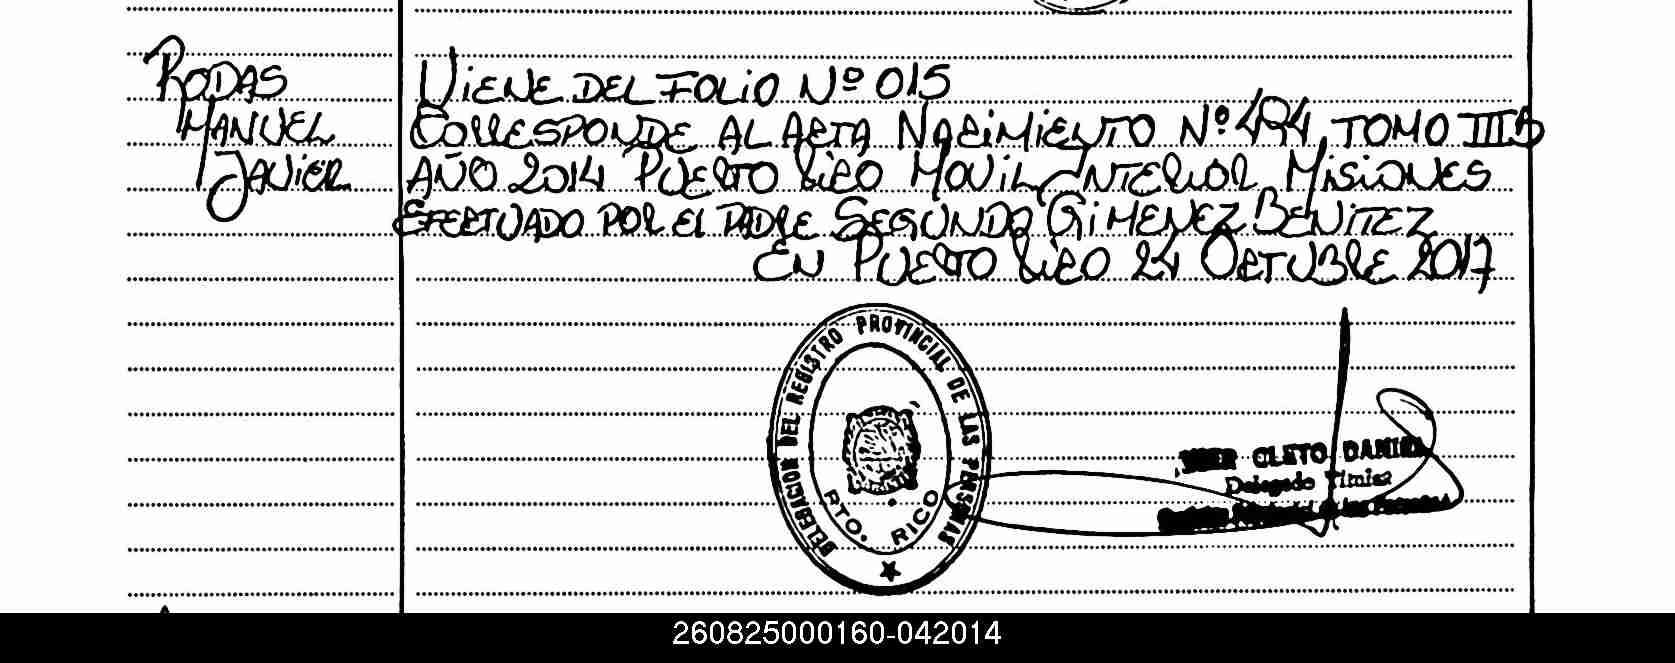 RODAS
MANUEL
JAVIER
VIENE DEL FOLIO Nº 015
CORRESPONDE AL ACTA NACIMIENTO Nº 494 TOMO III B
AÑO 2014 PUERTO RICO MOVIL INTERIOR MISIONES
EFECTUADO POR EL PADRE SEGUNDO GIMENEZ BENITEZ
EN PUERTO RICO 24 OCTUBRE 2017
DELEGACION DEL REGISTRO PROVINCIAL DE LAS PERSONAS
PTO. RICO
CLETO DANIEL
Delegado
de las Personas
260825000160-042014